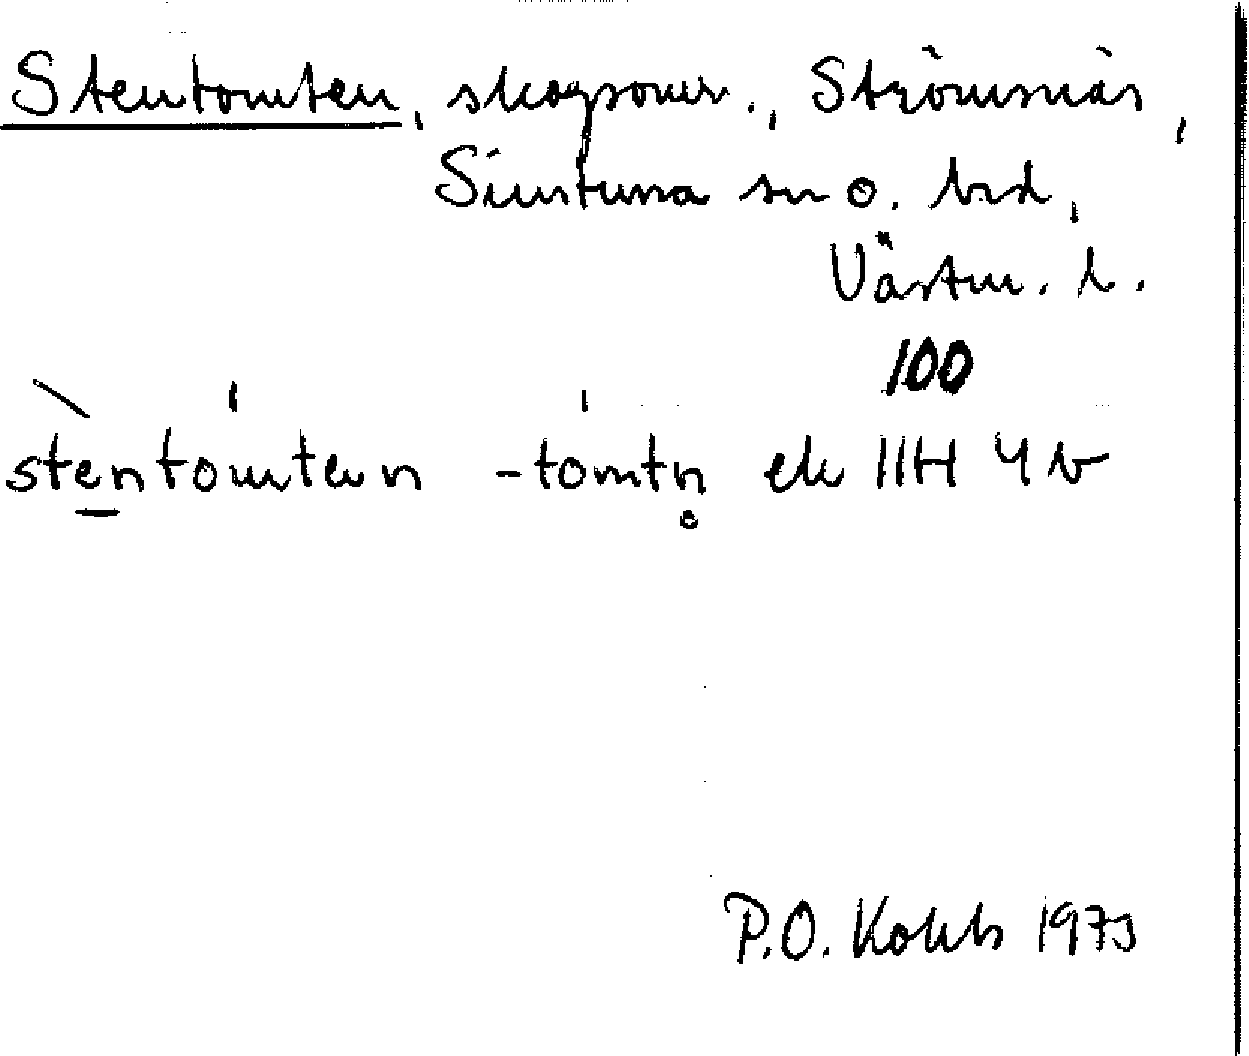 Stentomten, skogsomr., Strömsnäs,
Simtuna sn o. hd,
Västm. l.
100
stentomten -tomtn̥ ek 11H 4b
P.O. Kolsb 1973